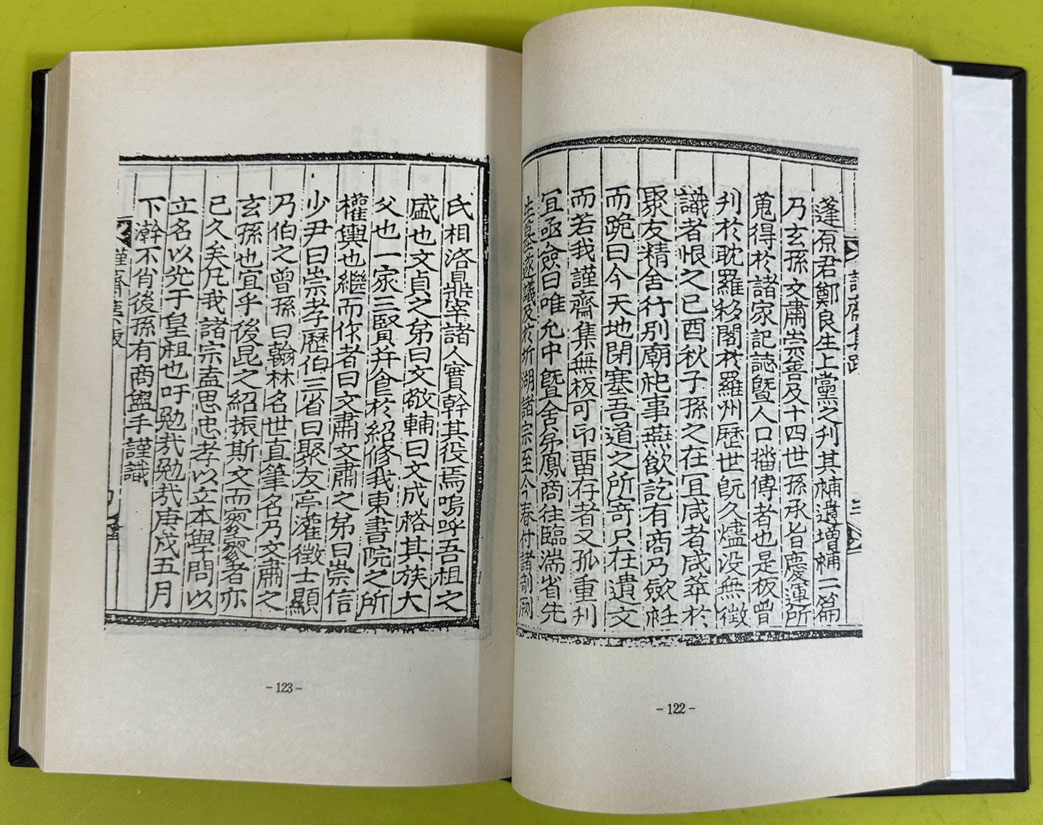 蓬原君鄭良生上黨之刋其補遺增補二篇
乃玄孫文肅崇善及十四世孫承旨慶運所
蒐得於諸家記誌曁人口播傳者也是板曾
刋於耽羅移閣於羅州歷世旣久燼没無徵
識者恨之己酉秋子孫之在宜咸者咸萃於
聚友精舍行別廟祀事燕飮訖有商乃斂衽
而跪曰今天地閉塞吾道之所寄只在遺文
而若我謹齋集無板可印畱存者又孤重刋
宜亟僉曰唯允中曁舍弟鳳商往臨湍省先
生墓遂議及於圻湖諸宗至今春付諸剞劂
謹齋集跋
三
- 122 -
氏相洛鼎宰諸人實幹其役焉嗚呼吾祖之
盛也文貞之弟曰文敬輔曰文成格其族大
父也一家三賢幷食於紹修我東書院之所
權輿也繼而作者曰文肅文肅之弟曰崇信
少尹曰崇孝歷伯三省曰聚友亭灌徵士顯
乃伯之曾孫曰翰林名世直筆名乃文肅之
玄孫也宜乎後昆之紹振斯文而寥寥者亦
已久矣凡我諸宗盍思忠孝以立本學問以
立名以光于皇祖也吁勉哉勉哉庚戌五月
下澣不肖後孫有商盥手謹識
謹齋集跋
- 123 -